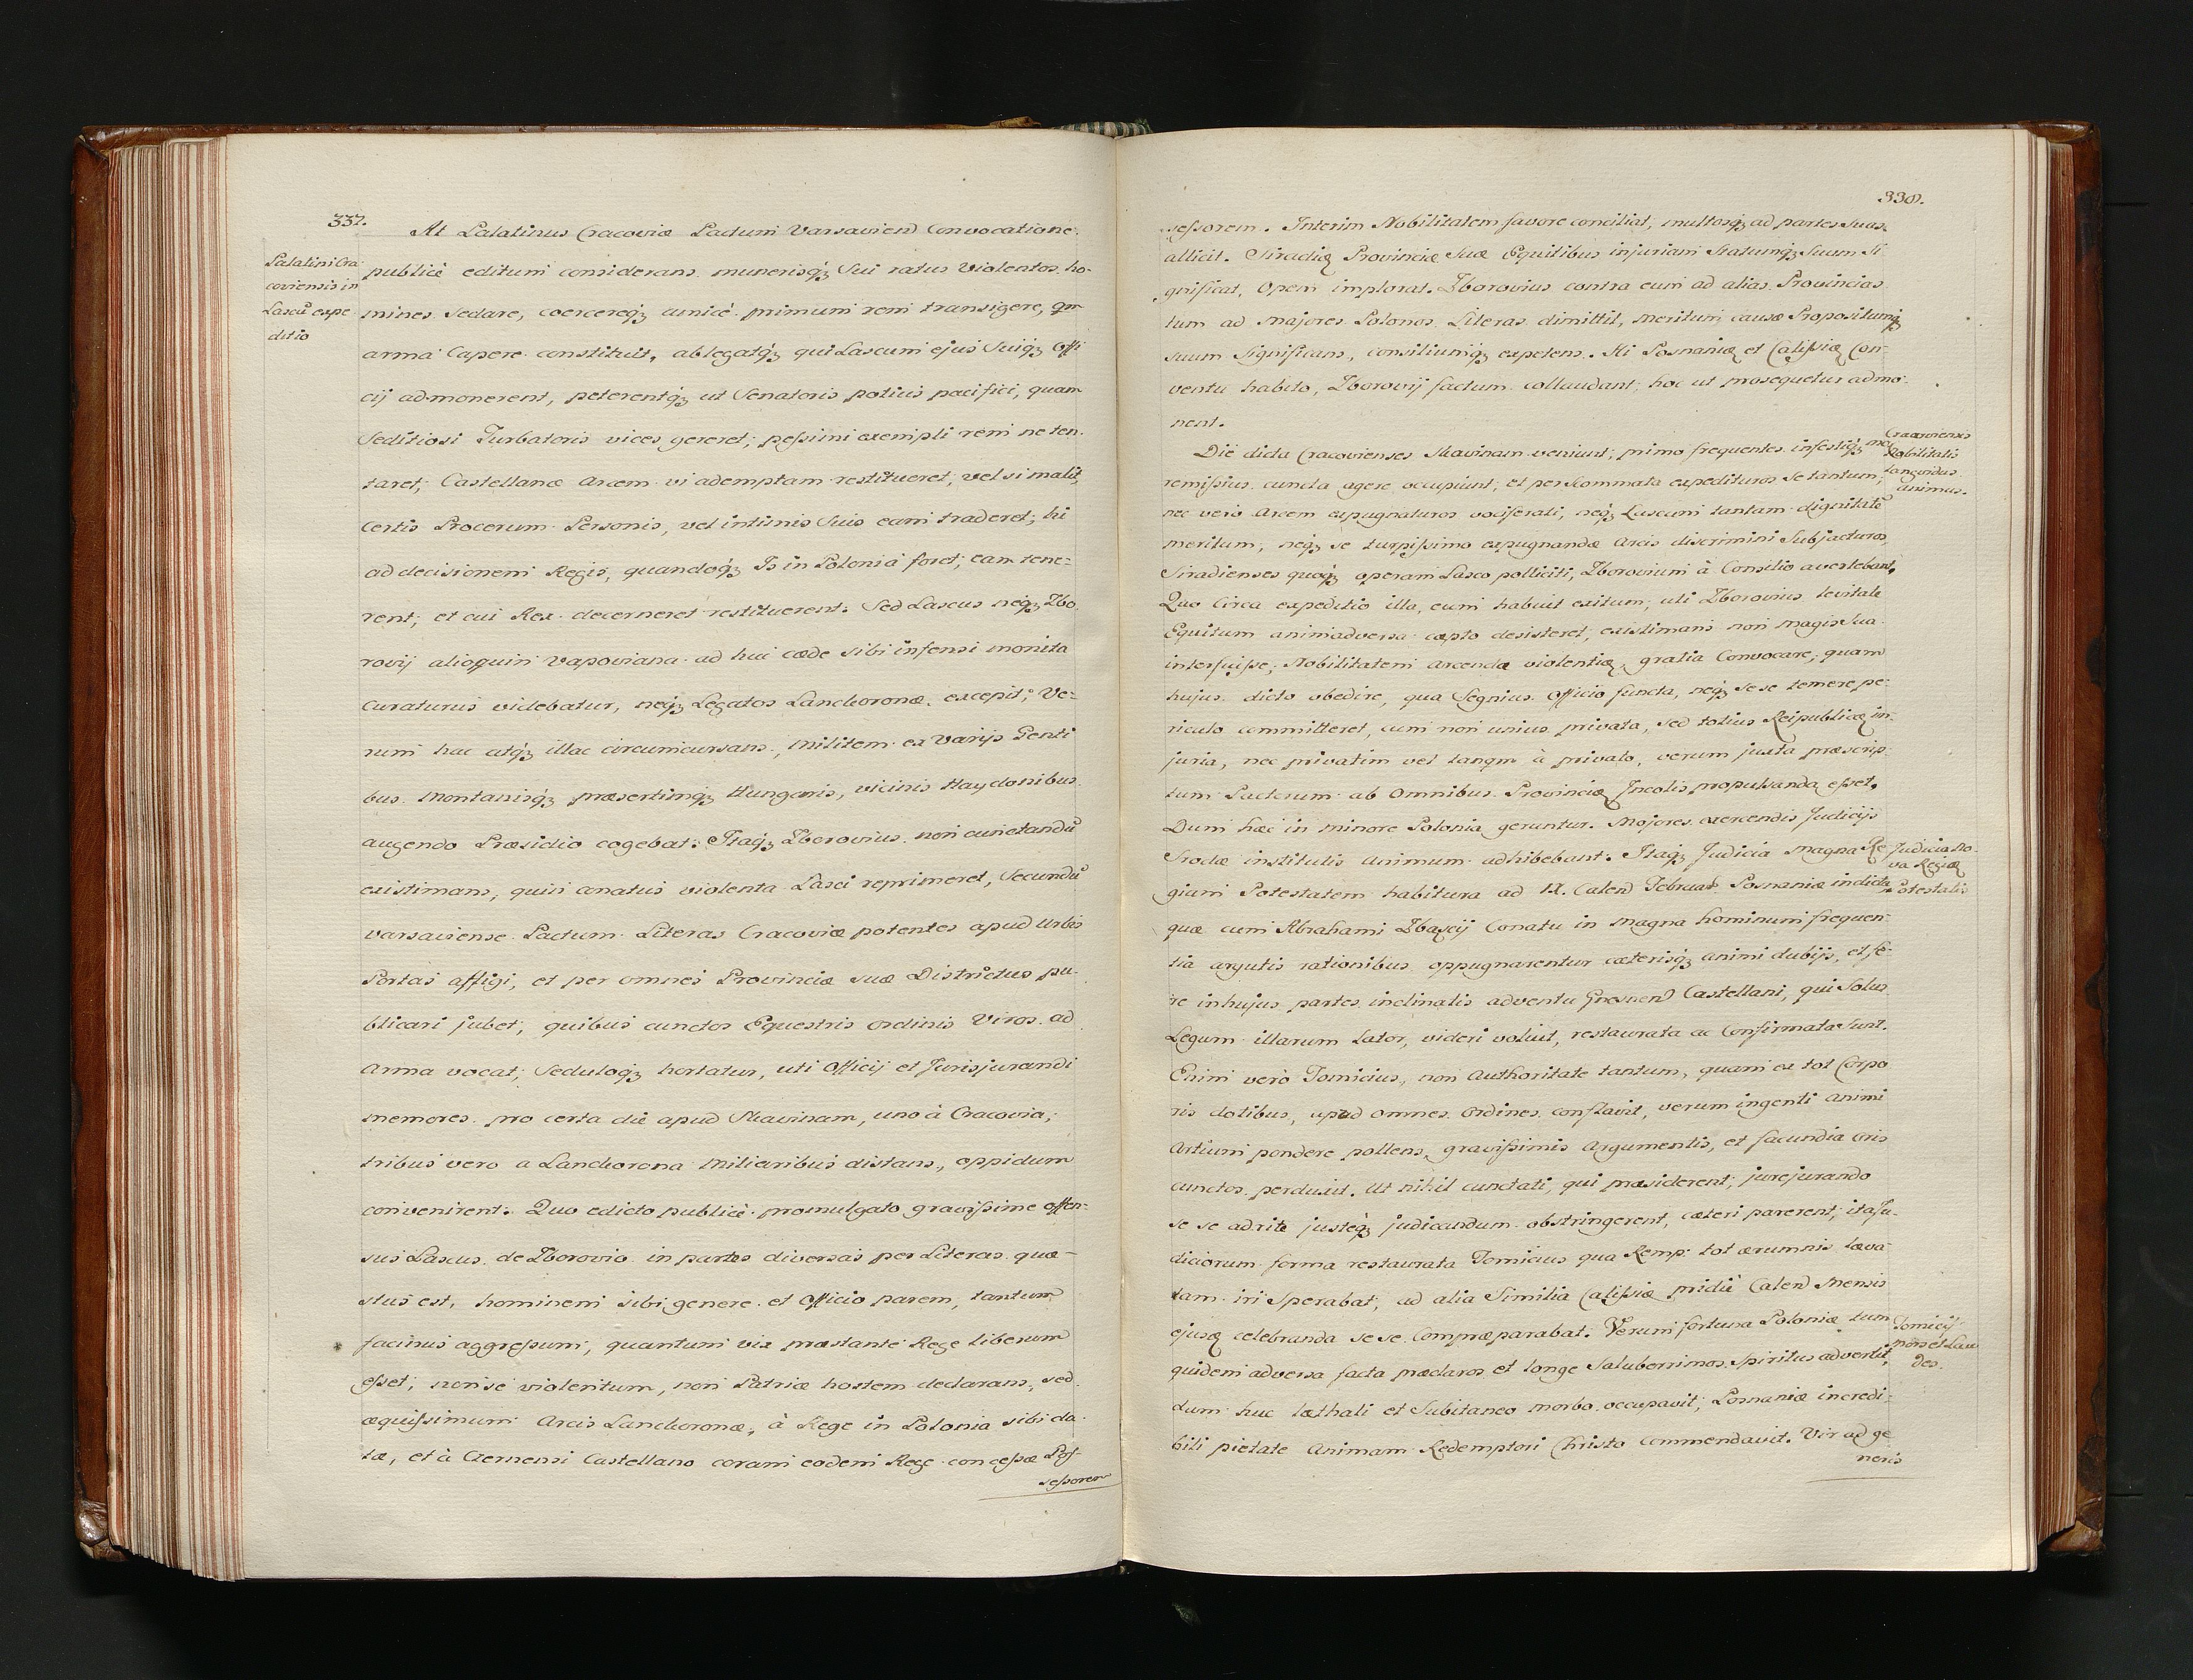 337.
At Palatinus Cracoviæ Pactum Varsavien Convocatione
Palatini Cra-
coviensis in
Lascū expe
ditio
publicè editum considerans munerisq́ꝫ Sui ratus Violentos ho-
mines Sedare, coercereq́ꝫ amicè primum rem transigere, qm
arma Capere constituit, ablegatq́ꝫ qui Lascum ejus Suiq́ꝫ Offi
cij admonerent, peterentq́ꝫ ut Senatoris potius pacifici, quam
Seditiosi Turbatoris vices gereret; peſsimi exempli rem ne ten-
taret; Castellanæ Arcem vi ademptam restitueret, vel si malit,
Certis Procerum Personis, vel intimis Suis eam traderet; hi
ad decisionem Regis, quandoq́ꝫ Is in Poloniâ foret; eam tene-
rent; et cui Rex decerneret restituerent. Sed Lascus neq́ꝫ Zbo
rovij alioquin Vapoviana ad huc cæde sibi infensi monita
Curaturus videbatur, neq́ꝫ Legatos Lanckoronæ excepit; Ve-
rum hac atq́ꝫ illac circumcursans, Militem ex Varijs Genti
bus Montanisq́ꝫ præsertimq́ꝫ Hungaris, vicinis Haydonibus
augendo Præsidio cogebat. Itaq́ꝫ Zborovius non cunctandū
existimans, quin conatus violenta Lasci reprimeret, Secundū
Varsaviense Pactum Literas Cracoviæ potentes apud Urbis
Portas affigi, et per omnes Provinciæ suæ Districtus pu-
blicari jubet, quibus cunctos Equestris Ordinis Viros ad
Arma vocat, Seduloq́ꝫ hortatur, uti Officij et Jurisjurandi
memores pro certa die apud Skavinam, uno à Cracovia,
tribus vero a Lanckorona Miliaribus distans, oppidum
convenirent. Quo edicto publicè promulgato graviſsime offen-
sus Lascus de Zborovio in partes diversas per Literas quæ-
stus est, hominem sibi genere et Officio parem, tantum
facinus aggreſsum, quantum vix præstante Rege liberum
eſset; non se violentum, non Patriæ hostem declarans, sed
æquiſsimum Arcis Lanckoronæ, à Rege in Polonia sibi da-
tæ, et à Czernensi Castellano coram eodem Rege conceſsæ Poſ
seſsorem
338.
seſsorem. Interim Nobilitatem favore conciliat, multosq́ꝫ ad partes Suas
allicit. Siradiæ Provinciæ Suæ Equitibus injuriam Statumq́ꝫ Suum Si
gnificat, Opem implorat. Zborovius contra eum ad alias Provincias
tum ad Majores Polonos Literas dimittit, Meritum causæ Propositumq́ꝫ
suum Significans, consiliumq́ꝫ expetens. Hi Posnaniæ et Caliſsiæ Con-
ventu habito, Zborovij factum collaudant, hoc ut prosequetur admo-
nent.
Die dicta Cracovienses Skavinam veniunt; primo frequentes infestiq́ꝫ mox
Cracoviensis
Nobilitatis
languidus
animus.
remiſsius cuncta agere occupiunt; et per Scommata expedituros Se tantum,
nec verò Arcem expugnaturos vociferati, neq́ꝫ Lascum tantam dignitatē
meritum, neq́ꝫ se turpiſsimo expugnandæ Arcis discrimini Subjacturos,
Siradienses quoq́ꝫ operam Lasco polliciti, Zborovium à Consilio avertebant.
Quo Circa expeditio illa, eum habuit exitum, uti Zborovius levitate
Equitum animadversa cæpto desisteret, existimans non magis Sua
interfuiſse, Nobilitatem Arcendæ violentiæ, gratia Convocare, quam
hujus dicto obedire, qua Segnius Officio functa, neq́ꝫ se se temere pe-
riculo committeret, cum non unius privata, sed totius Reipublicæ in-
juria, nec privatim vel tanqm à privato, verum juxta præscrip-
tum Pactorum ab Omnibus Provinciæ Incolis propulsanda eſset.
Dum hæc in minore Polonia geruntur. Majores exercendis Judicijs
Srodæ institutis Animum adhibebant. Itaq́ꝫ Judicia Magna Re
Judicia No-
va Regiæ
Potestatis
giam Potestatem habitura ad IX. Calen Februar Posnaniæ indicta
quæ cum Abrahami Zbąscij Conatu in Magna hominum frequen-
tia argutis rationibus oppugnarentur cæterisq́ꝫ animi dubijs, et fe-
re in hujus partes inclinatis adventu Gnesnen Castellani, qui Solus
Legum illarum Lator, videri voluit, restaurata ac Confirmata Sunt.
Enim verò Tomicius, non Authoritate tantum, quam ex tot Corpo
ris dotibus, apud Omnes Ordines conflavit, verum ingenti Animi
Artium pondere pollens, graviſsimis Argumentis, et facundia Oris
cunctos perduxit. Ut nihil cunctati, qui præsiderent, jurejurando
Se se ad rite justeq́ꝫ judicandum obstringerent, cæteri parerent; ita Ju-
diciorum forma restaurata Tomicius qua Remp: tot ærumnis læva-
tam iri Sperabat, ad alia Similia Caliſsiæ pridiè Calen Mensis
ejusꝗ celebranda se se Compræparabat. Verum fortuna Poloniæ tum
Tomicij
Mors et Lau
des.
quidem adversa facta præclaros et longe Saluberrimos Spiritus advertit,
dum huc læthali et Subitaneo morbo occupavit; Posnaniæ incredi-
bili pietate Animam Redemptori Christo Commendavit. Vir ad ge
neris